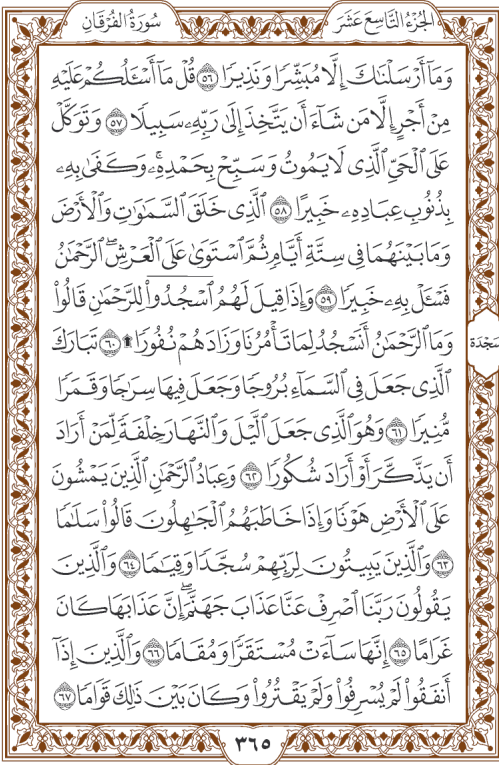 سُورَةُ الفُرْقَانِ
الجُزْءُ التَّاسِعَ عَشَرَ
وَمَآ أَرْسَلْنَٰكَ إِلَّا مُبَشِّرًا وَنَذِيرًا ٥٦ قُلْ مَآ أَسْـَٔلُكُمْ عَلَيْهِ
مِنْ أَجْرٍ إِلَّا مَن شَآءَ أَن يَتَّخِذَ إِلَىٰ رَبِّهِۦ سَبِيلًا ٥٧ وَتَوَكَّلْ
عَلَى ٱلْحَىِّ ٱلَّذِى لَا يَمُوتُ وَسَبِّحْ بِحَمْدِهِۦۚ وَكَفَىٰ بِهِۦ
بِذُنُوبِ عِبَادِهِۦ خَبِيرًا ٥٨ ٱلَّذِى خَلَقَ ٱلسَّمَٰوَٰتِ وَٱلْأَرْضَ
وَمَا بَيْنَهُمَا فِى سِتَّةِ أَيَّامٍ ثُمَّ ٱسْتَوَىٰ عَلَى ٱلْعَرْشِۖ ٱلرَّحْمَٰنُ
فَسْـَٔلْ بِهِۦ خَبِيرًا ٥٩ وَإِذَا قِيلَ لَهُمُ ٱسْجُدُوا۟ لِلرَّحْمَٰنِ قَالُوا۟
وَمَا ٱلرَّحْمَٰنُ أَنَسْجُدُ لِمَا تَأْمُرُنَا وَزَادَهُمْ نُفُورًا ۩ ٦٠ تَبَارَكَ
سَجْدَة
ٱلَّذِى جَعَلَ فِى ٱلسَّمَآءِ بُرُوجًا وَجَعَلَ فِيهَا سِرَٰجًا وَقَمَرًا
مُّنِيرًا ٦١ وَهُوَ ٱلَّذِى جَعَلَ ٱلَّيْلَ وَٱلنَّهَارَ خِلْفَةً لِّمَنْ أَرَادَ
أَن يَذَّكَّرَ أَوْ أَرَادَ شُكُورًا ٦٢ وَعِبَادُ ٱلرَّحْمَٰنِ ٱلَّذِينَ يَمْشُونَ
عَلَى ٱلْأَرْضِ هَوْنًا وَإِذَا خَاطَبَهُمُ ٱلْجَٰهِلُونَ قَالُوا۟ سَلَٰمًا
٦٣ وَٱلَّذِينَ يَبِيتُونَ لِرَبِّهِمْ سُجَّدًا وَقِيَٰمًا ٦٤ وَٱلَّذِينَ
يَقُولُونَ رَبَّنَا ٱصْرِفْ عَنَّا عَذَابَ جَهَنَّمَۖ إِنَّ عَذَابَهَا كَانَ
غَرَامًا ٦٥ إِنَّهَا سَآءَتْ مُسْتَقَرًّا وَمُقَامًا ٦٦ وَٱلَّذِينَ إِذَآ
أَنفَقُوا۟ لَمْ يُسْرِفُوا۟ وَلَمْ يَقْتُرُوا۟ وَكَانَ بَيْنَ ذَٰلِكَ قَوَامًا ٦٧
٣٦٥